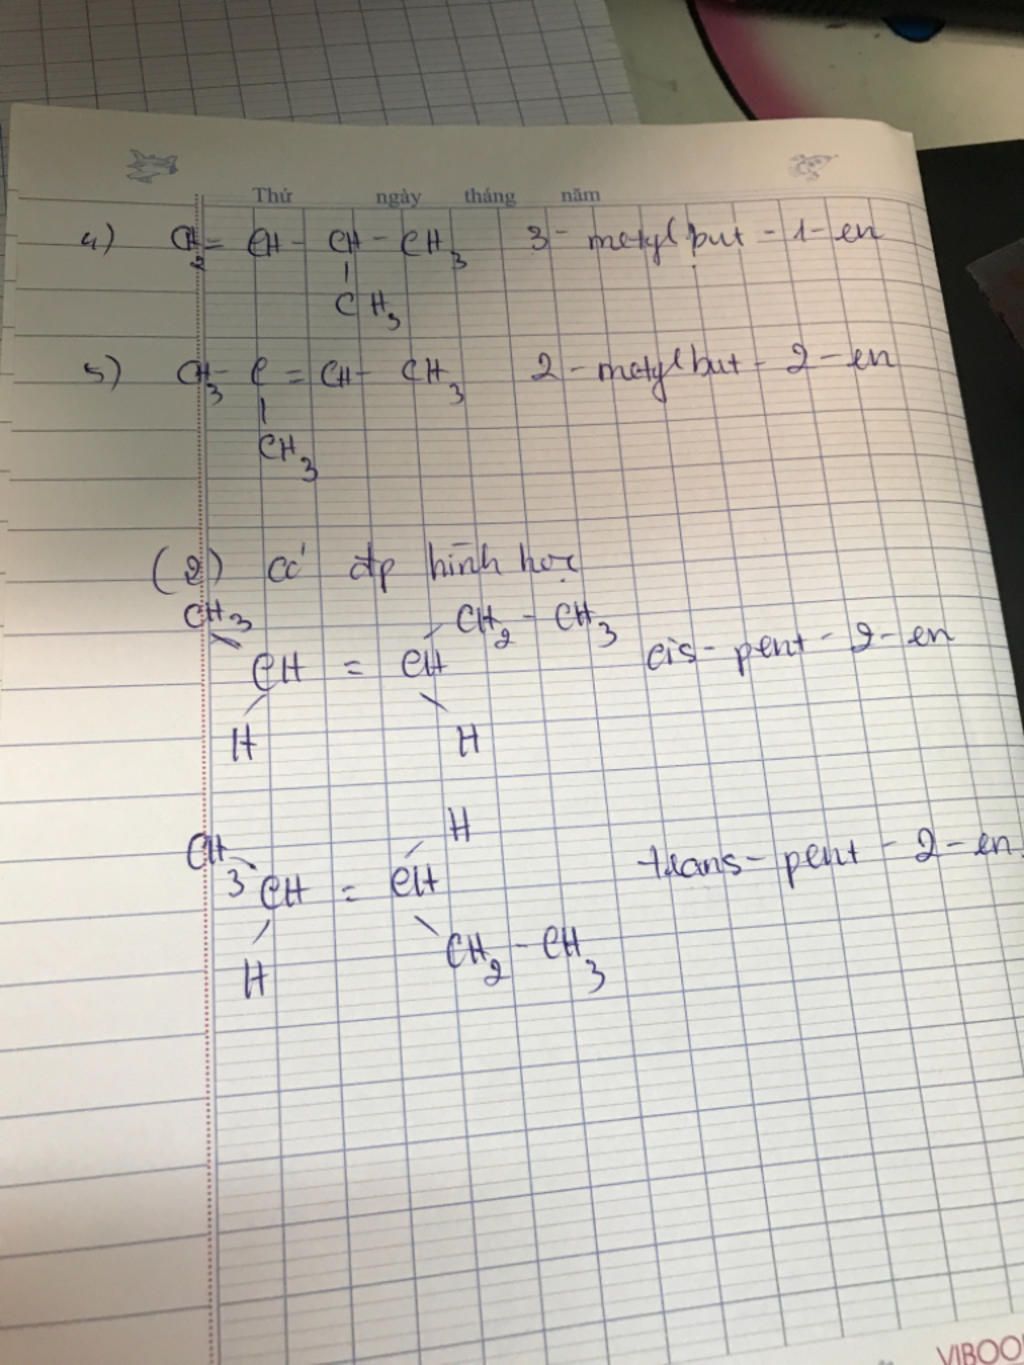 Thứ ngày tháng năm
4) CH2 = CH - CH - CH3 3 - metyl but - 1 - en
CH3
5) CH3 - C = CH - CH3 2 - metyl but - 2 - en
CH3
(2) có đp hình học
CH3 CH2 - CH3
CH = CH cis - pent - 2 - en
H H
H
CH3 CH = CH trans - pent - 2 - en
H CH2 - CH3